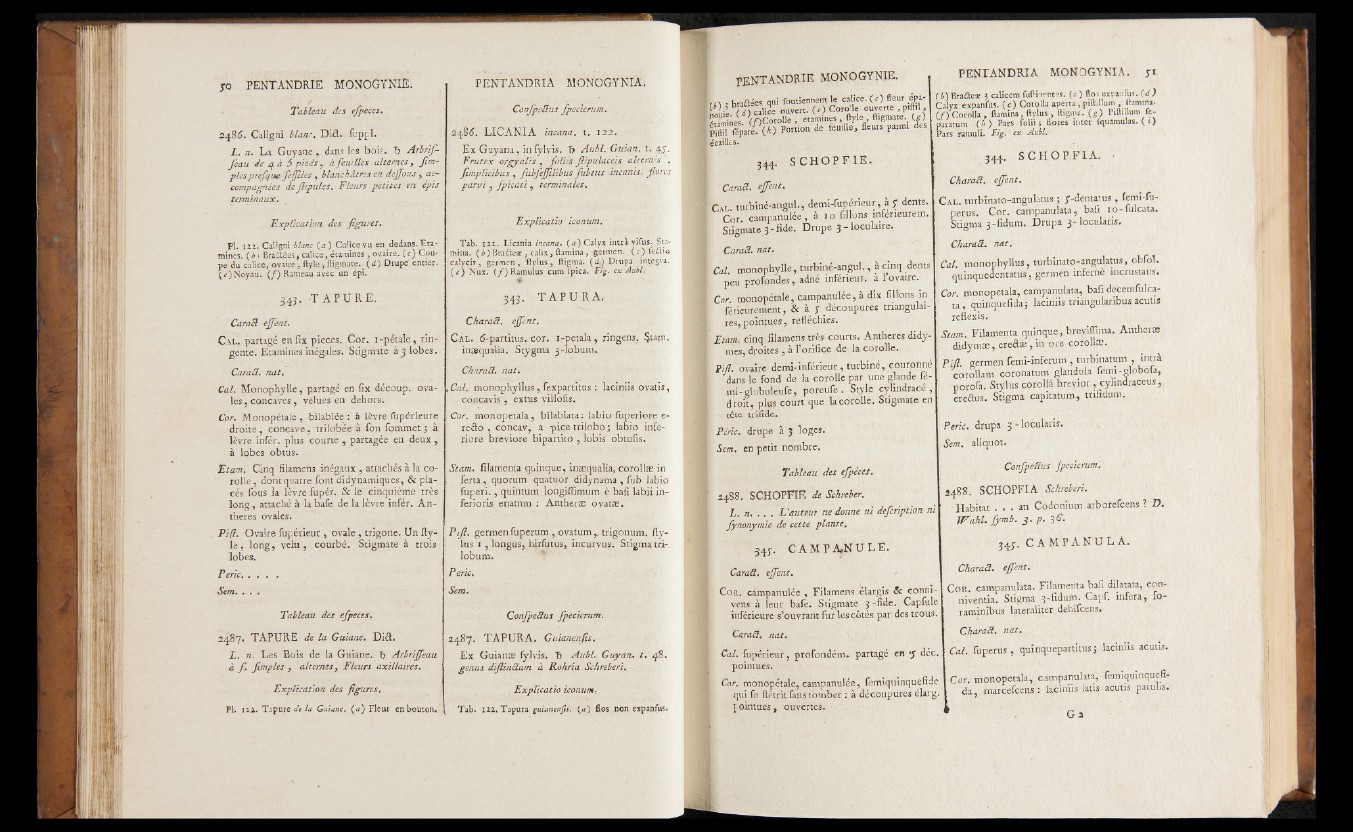 50 PENTANDRIE MONOGYNIE.
Tableau des eſpeces.
2486. Caligni blanc. Dict. ſuppl.
L. n. La Guyane, dans les bois. ♄ Arbriſ-
ſeau de 4 à 5 pieds, à feuilles alternes, ſim-
ples preſque ſeſſiles, blanchâtres en deſſous, ac-
compagnées de ſtipules. Fleurs petites en épis
terminaux.
Explication des figures.
Pl. 122. Caligni blanc (a) Calice vu en dedans. Eta-
mines. (b) Bractées, calice, étamines, ovaire. (c) Cou-
pe du calice, ovaire, ſtyle, ſtigmate. (d) Drupe entier.
(e) Noyau. (f) Rameau avec un épi.
343. TAPURE.
Caract. eſſent.
CAL. partagé en ſix pieces. Cor. 1-pétale, rin-
gente. Etamines inégales. Stigmate à 3 lobes.
Caract. nat.
Cal. Monophylle, partagé en ſix découp. ova-
les, concaves, velues en dehors.
Cor. Monopétale, bilabiée : à lèvre ſupérieure
droite, concave, trilobée à ſon ſommet ; à
lèvre infér. plus courte, partagée en deux,
à lobes obtus.
Etam. Cinq filamens inégaux, attachés à la co-
rolle, dont quatre ſont didynamiques, & pla-
cés ſous la lèvre ſupér. & le cinquième très
long, attaché à la baſe de la lèvre infér. An-
theres ovales.
Piſt. Ovaire ſupérieur, ovale, trigone. Un ſty-
le, long, velu, courbé. Stigmate à trois
lobes.
Peric. . . . .
Sem. . . .
Tableau des eſpeces.
2487. TAPURE de la Guiane. Dict.
L. n. Les Bois de la Guiane. ♄ Arbriſſeau
à f. ſimples, alternes, Fleurs axillaires.
Explication des figures.
Pl. 122. Tapure de la Guiane. (a) Fleur en bouton.
PENTANDRIA MONOGYNIA.
Conſpectus ſpecierum.
2486. LICANIA incana. t. 122.
Ex Guyana, in ſylvis. ♄ Aubl. Guian. t. 45.
Frutex orgyalis, foliis ſtipulaceis alternis,
ſimplicibus, ſubſeſſilibus ſubtus incanis. flores
parvi, ſpicati, terminales.
Explicatio iconum.
Tab. 122. Licania incana. (a) Calyx intrà viſus. Sta-
mina. (b) Bracteæ, calix, ſtamina, germen. (c) ſectio
calycis, germen, ſtylus, ſtigma. (d) Drupa integra.
(e) Nux. (f) Ramulus cum ſpica. Fig. ex Aubl.
343. TAPURA.
Charact. eſſent.
CAL. 6-partitus. cor. 1-petala, ringens. Stam.
inæqualia. Stygma 3-lobum.
Charact. nat.
Cal. monophyllus, ſexpartitus : laciniis ovatis,
concavis, extus villoſis.
Cor. monopetala, bilabiata : labio ſuperiore e-
recto, concav, a pice trilobo ; labio infe-
riore breviore bipartito, lobis obtuſis.
Stam. filamenta quinque, inæqualia, corollæ in
ſerta, quorum quatuor didynama, ſub labio
ſuperi., quintum longiſſimum è baſi labii in-
ferioris enatum : Antheræ ovatæ.
Piſt. germen ſuperum, ovatum, trigonum. ſty-
lus 1, longus, hirſutus, incurvus. Stigma tri-
lobum.
Peric.
Sem.
Conſpectus ſpecierum.
2487. TAPURA. Guianenſis.
Ex Guianæ ſylvis. ♄ Aubl. Guyan. t. 48.
genus diſtinctum à Rohria Schreberi.
Explicatio iconum.
Tab. 122. Tapura guianenſis. (a) flos non expanſus.
PENTANDRIE MONOGYNIE.
(b) 3 bractées qui ſoutiennent le calice. (c) fleur épa-
nouie. (d) calice ouvert. (e) Corolle ouverte, piſtil,
étamines. (f) Corolle, étamines, ſtyle, ſtigmate. (g)
Piſtil ſéparé. (h) Portion de feuille, fleurs parmi des
écailles.
344. SCHOPFIE.
Caract. eſſent.
CAL. turbiné-angul., demi-ſupérieur, à 5 dents.
Cor. campanulée, à 10 ſillons inférieurem.
Stigmate 3-fide. Drupe 3-loculaire.
Caract. nat.
Cal. monophylle, turbiné-angul., à cinq dents
peu profondes, adné inférieur. à l'ovaire.
Cor. monopétale, campanulée, à dix ſillons in
férieurement, & à 5 découpures triangulai-
res, pointues, refléchies.
Etam. cinq filamens très courts. Antheres didy-
mes, droites, à l'orifice de la corolle.
Piſt. ovaire demi-inférieur, turbiné, couronné
dans le fond de la corolle par une glande ſé-
mi-globuleuſe, poreuſe. Style cylindracé,
droit, plus court que la corolle. Stigmate en
tête trifide.
Péric. drupe à 3 loges.
Sem. en petit nombre.
Tableau des eſpèces.
2488. SCHOPFIE de Schreber.
L. n. . . . L'auteur ne donne ni deſcription ni
ſynonymie de cette plante.
345. CAMPANULE.
Caract. eſſent.
COR. campanulée, Filamens élargis & conni-
vens à leur baſe. Stigmate 3-fide. Capſule
inférieure s'ouvrant ſur les côtés par des trous.
Caract. nat.
Cal. ſupérieur, profondém. partagé en 5 déc.
pointues.
Cor. monopétale, campanulée, ſemiquinquefide
qui ſe flétrit ſans tomber : à découpures élarg.
pointues, ouvertes.
PENTANDRIA MONOGYNIA. 51
(b) Bracteæ 3 calicem ſuſtinentes. (c) flos expanſus. (d)
Calyx expanſus. (e) Corolla aperta, piſtillum, ſtamina.
(f) Corolla, ſtamina, ſtylus, ſtigma. (g) Piſtillum ſe-
paratum (h) Pars folii ; flores inter ſquamulas. (i)
Pars ramuli. Fig. ex Aubl.
344. SCHOPFIA.
Charact. eſſent.
CAL. turbinato-angulatus ; 5-dentatus, ſemi-ſu-
perus. Cor. campanulata, baſi 10-ſulcata.
Stigma 3-fidum. Drupa 3-locularis.
Charact. nat.
Cal. monophyllus, turbinato-angulatus, obſol.
quinquedentatus, germen infernè incruſtans.
Cor. monopetala, campanulata, baſi decemſulca-
ta, quinquefida ; laciniis triangularibus acutis
reflexis.
Stam. Filamenta quinque, breviſſima. Antheræ
didymæ, erectæ, in ore corollæ.
Piſt. germen ſemi-inferum, turbinatum, intrà
corollam coronatum glandula ſemi-globoſa,
poroſa. Stylus corollâ brevior, cylindraceus,
erectus. Stigma capitatum, trifidum.
Peric. drupa 3-locularis.
Sem. aliquot.
Conſpectus ſpecierum.
2488. SCHOPFIA Schreberi.
Habitat . . . an Codonium arboreſcens ? D.
Wahl. ſymb. 3. p. 36.
345. CAMPANULA.
Charact. eſſent.
COR. campanulata. Filamenta baſi dilatata, con-
niventia. Stigma 3-fidum. Capſ. infera, fo-
raminibus lateraliter dehiſcens.
Charact. nat.
Cal. ſuperus, quinquepartitus ; laciniis acutis.
Cor. monopetala, campanulata, ſemiquinquefi-
da, marceſcens : laciniis latis acutis patulis.
G 2